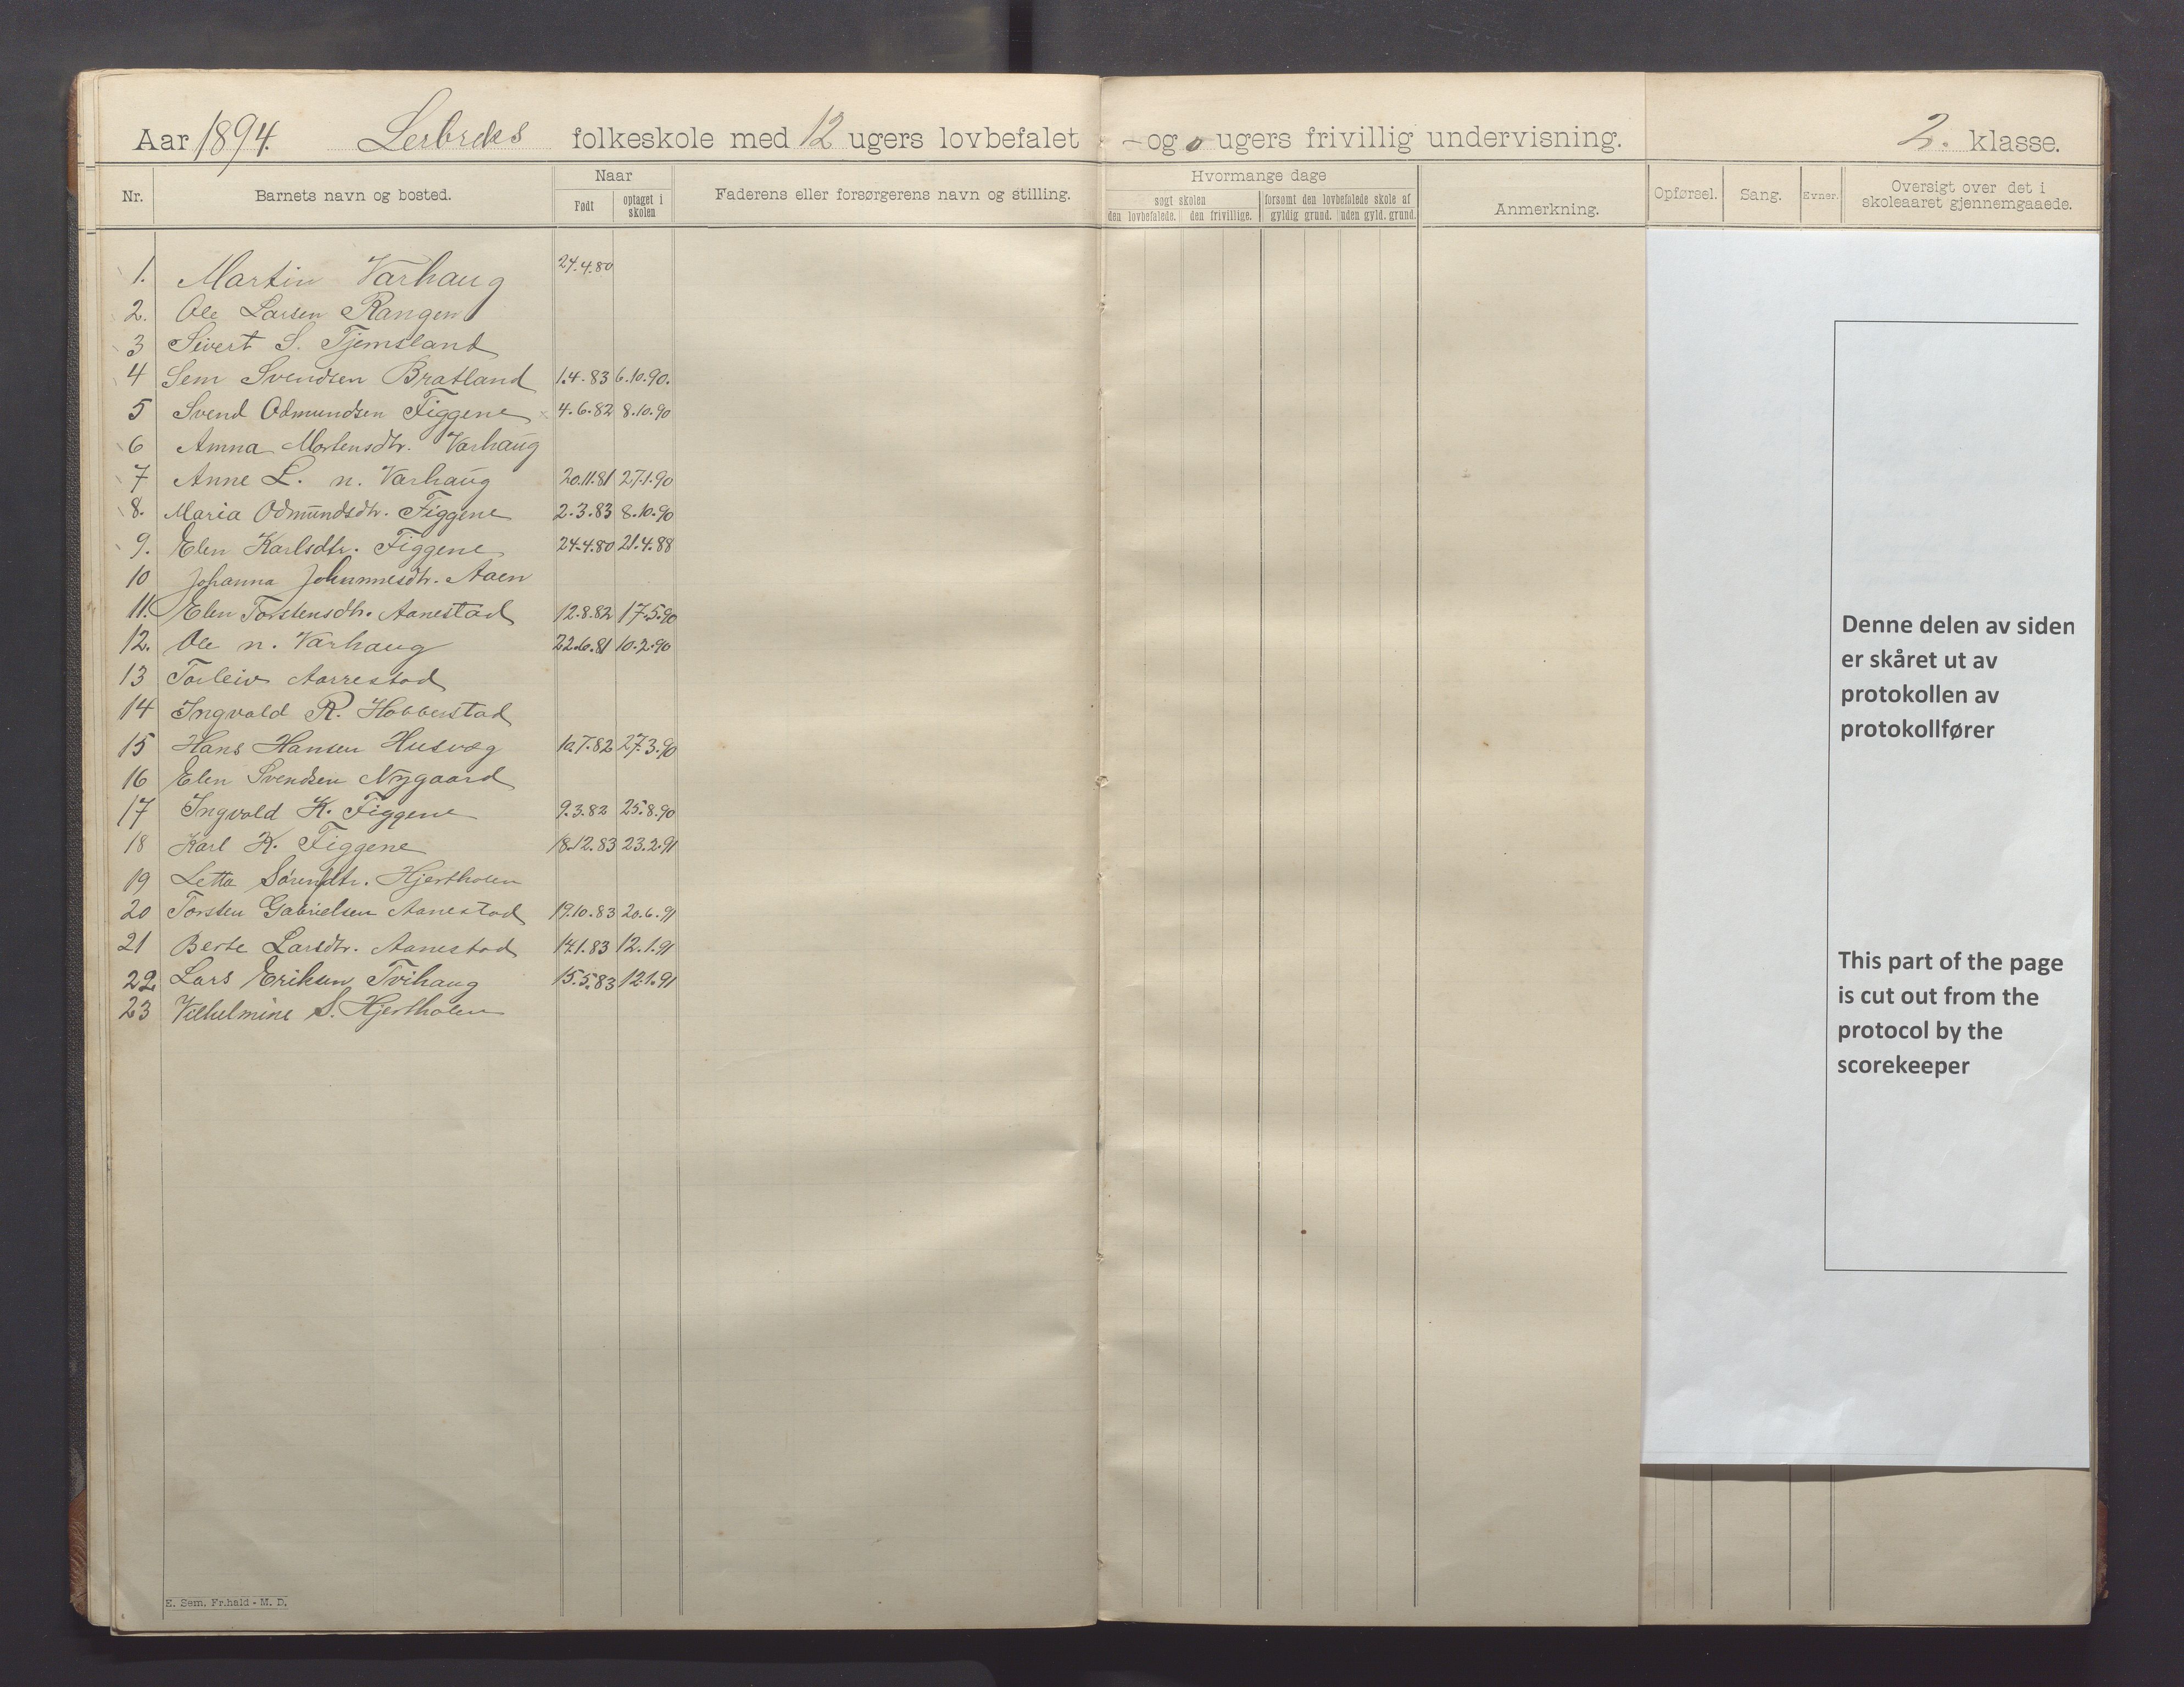 Aar 1894. Lerbreks folkeskole med 12 ugers lovbefalet - og 0 ugers frivillig undervisning. 2. klasse.
Nr. Barnets navn og bosted. Naar Født optaget i skolen Faderens eller forsørgerens navn og stilling. Hvormange dage søgt skolen den lovbefalede. den frivillige. forsømt den lovbefalede skole af gyldig grund. uden gyld. grund. Anmerkning. Opførsel. Sang. Evner. Oversigt over det i skoleaaret gjennemgaaede.
1. Martin Varhaug 24.4.80
2. Ole Larsen Rangen
3 Sivert S. Tjemsland
4 Sem Svendsen Bratland 1.4.83 6.10.90.
5 Svend Odmundsen Figgene 4.6.82 8.10.90
6 Amna Mortensdtr. Varhaug
7 Anne L. n. Varhaug 20.11.81 27.1.90
8. Maria Odmundsdtr. Figgene 2.3.83 8.10.90
9. Elen Karlsdtr. Figgene 24.4.80 21.4.88
10 Johanna Johannesdtr. Aaen
11. Elen Torstensdtr. Aanestad 12.8.82 17.5.90
12. Ole n. Varhaug 22.6.81 10.2.90
13 Torleiv Aarrestad
14 Ingvald R. Hobberstad
15 Hans Hansen Husvæg 10.7.82 27.3.90
16 Elen Svendsen Nygaard
17 Ingvald K. Figgene 9.3.82 25.8.90
18 Karl K. Figgene 18.12.83 23.2.91
19 Letta Sørendtr. Hjertholen
20 Torsten Gabrielsen Aanestad 19.10.83 20.6.91
21 Berte Larsdtr. Aanestad 14.1.83 12.1.91
22. Lars Eriksen Tvihaug 15.5.83 12.1.91
23 Vilhelmine S. Hjertholen
E. Sem. Fr.hald - M. D.
Denne delen av siden
er skåret ut av
protokollen av
protokollfører
This part of the page
is cut out from the
protocol by the
scorekeeper